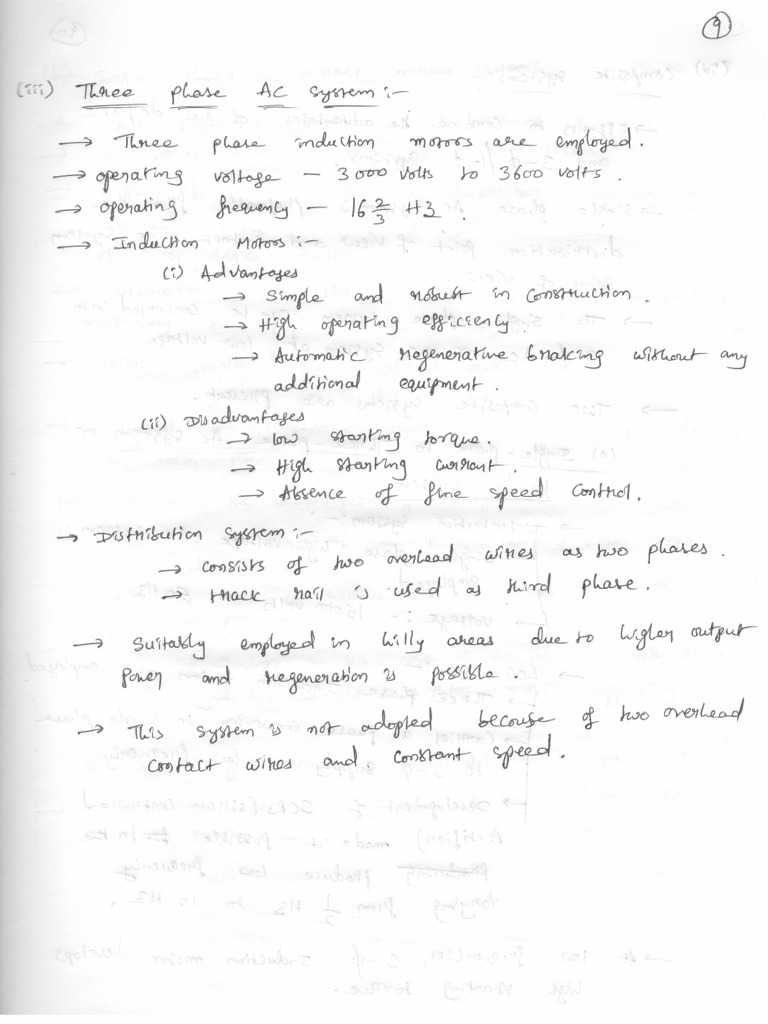 9
(iii) Three phase AC system :-
→ Three phase induction motors are employed.
→ operating voltage - 3000 volts to 3600 volts.
→ operating frequency - 16 2/3 Hz.
→ Induction Motors :-
(i) Advantages
→ Simple and robust in construction.
→ High operating efficiency.
→ Automatic regenerative braking without any
additional equipment.
(ii) Disadvantages
→ low starting torque.
→ High starting current.
→ Absence of fine speed control.
→ Distribution system :-
→ consists of two overhead wires as two phases.
→ track rail is used as third phase.
→ Suitably employed in hilly areas due to higher output
power and regeneration is possible.
→ This system is not adopted because of two overhead
contact wires and constant speed.